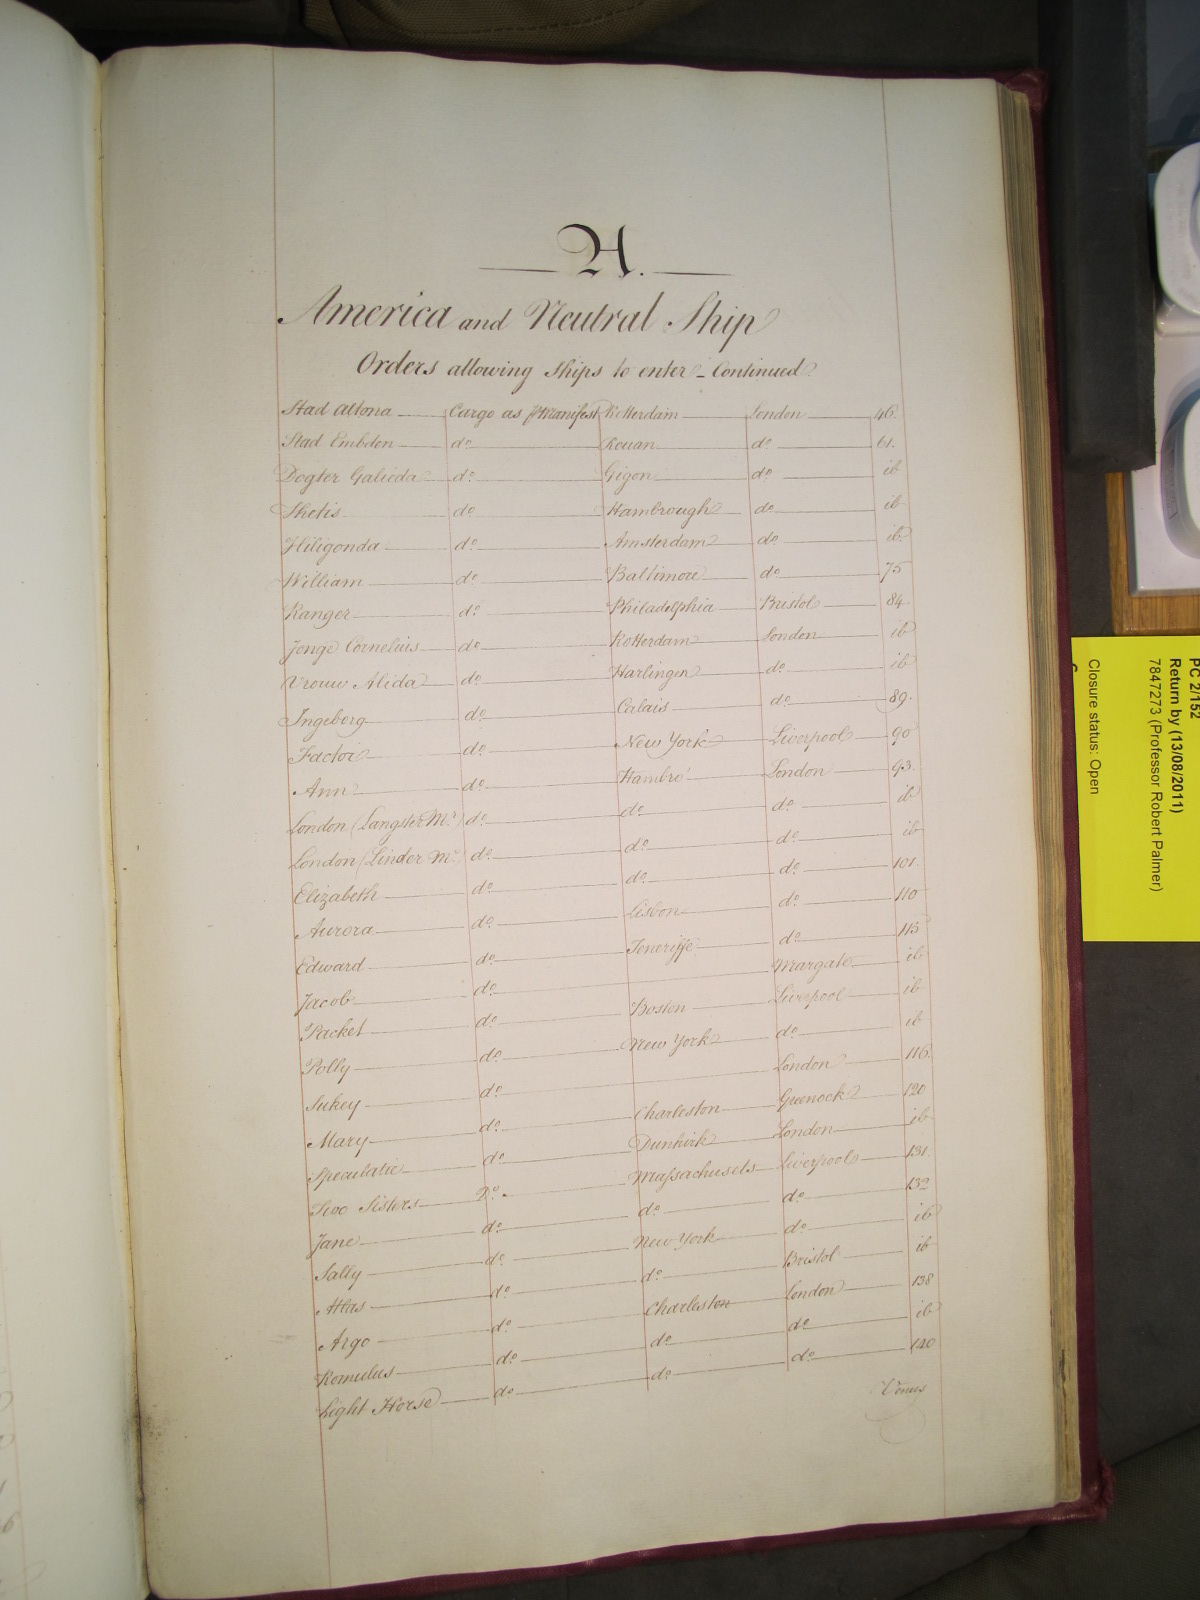 A.
America and Neutral Ship
Orders allowing Ships to enter - Continued
Stad Altona Cargo as p Manifest Rotterdam London 46.
Stad Embden do. Rouan do. 61.
Dogter Galieda do. Gigon do. ib
Thetis do. Hambrough do. ib
Hiligonda do. Amsterdam do. ib.
William do. Baltimore do. 75
Ranger do. Philadelphia Bristol 84
Jonge Cornelius do. Rotterdam London ib
Vrouw Alida do. Harlingen do. ib
Ingeborg do. Calais do. 89.
Factor do. New York Liverpool 90
Ann do. Hambro' London 93.
London (Langster Mr.) do. do. do. ib
London (Linder Mr.) do. do. do. ib
Elizabeth do. do. do. 101
Aurora do. Lisbon do. 110
Edward do. Teneriffe do. 115
Jacob do. Margate ib
Packet do. Boston Liverpool ib
Polly do. New York do. ib
Sukey do. London 116.
Mary do. Charleston Greenock 120
Speculatie do. Dunkirk London ib
Two Sisters Do. Massachusets Liverpool 131.
Jane do. do. do. 132
Sally do. New York do. ib
Atlas do. do. Bristol ib
Argo do. Charleston London 138
Romulus do. do. do. ib
Light Horse do. do. do. 140
Venus
PC 2/152
Return by (13/08/2011)
7847273 (Professor Robert Palmer)
Closure status: Open